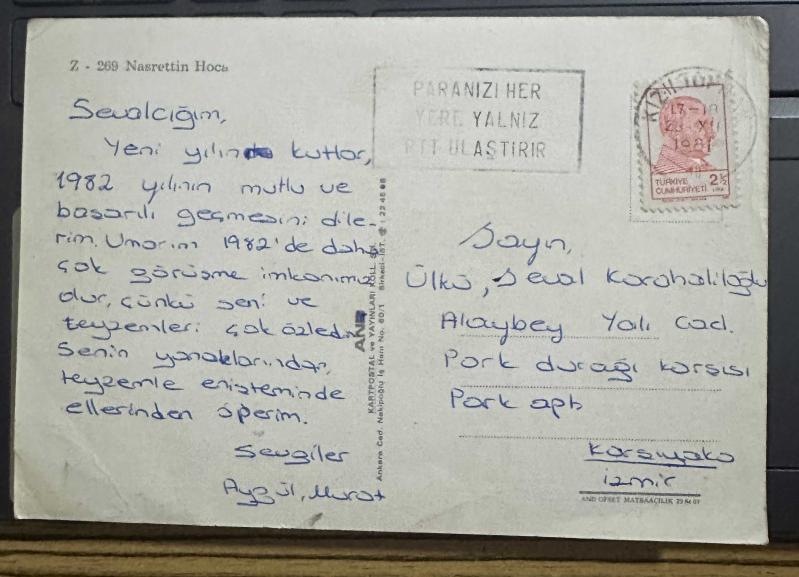 Z - 269 Nasrettin Hoca
PARANIZI HER
YERE YALNIZ
PTT ULAŞTIRIR
17-18
1981
TÜRKİYE
CUMHURİYETİ 2½
LİRA
Sevalcığım,
Yeni yılını kutlar,
1982 yılının mutlu ve
başarılı geçmesini dile-
rim. Umarım 1982'de daha
çok görüşme imkanımız
olur, çünkü seni ve
teyzemleri çok özledim
Senin yanaklarından,
teyzemle enişteminde
ellerinden öperim.
Sevgiler
Aygül, Murat
AND
KARTPOSTAL ve YAYINLARI KOLL. ŞTİ.
Ankara Cad. Nakipoğlu İş Hanı No. 60/1 Sirkeci-İST. 22 45 68
Sayın,
Ülkü, Seval Karahaliloğlu
Alaybey Yalı cad.
Park durağı karşısı
Park apt
Karşıyaka
İzmir
AND OFSET MATBAACILIK